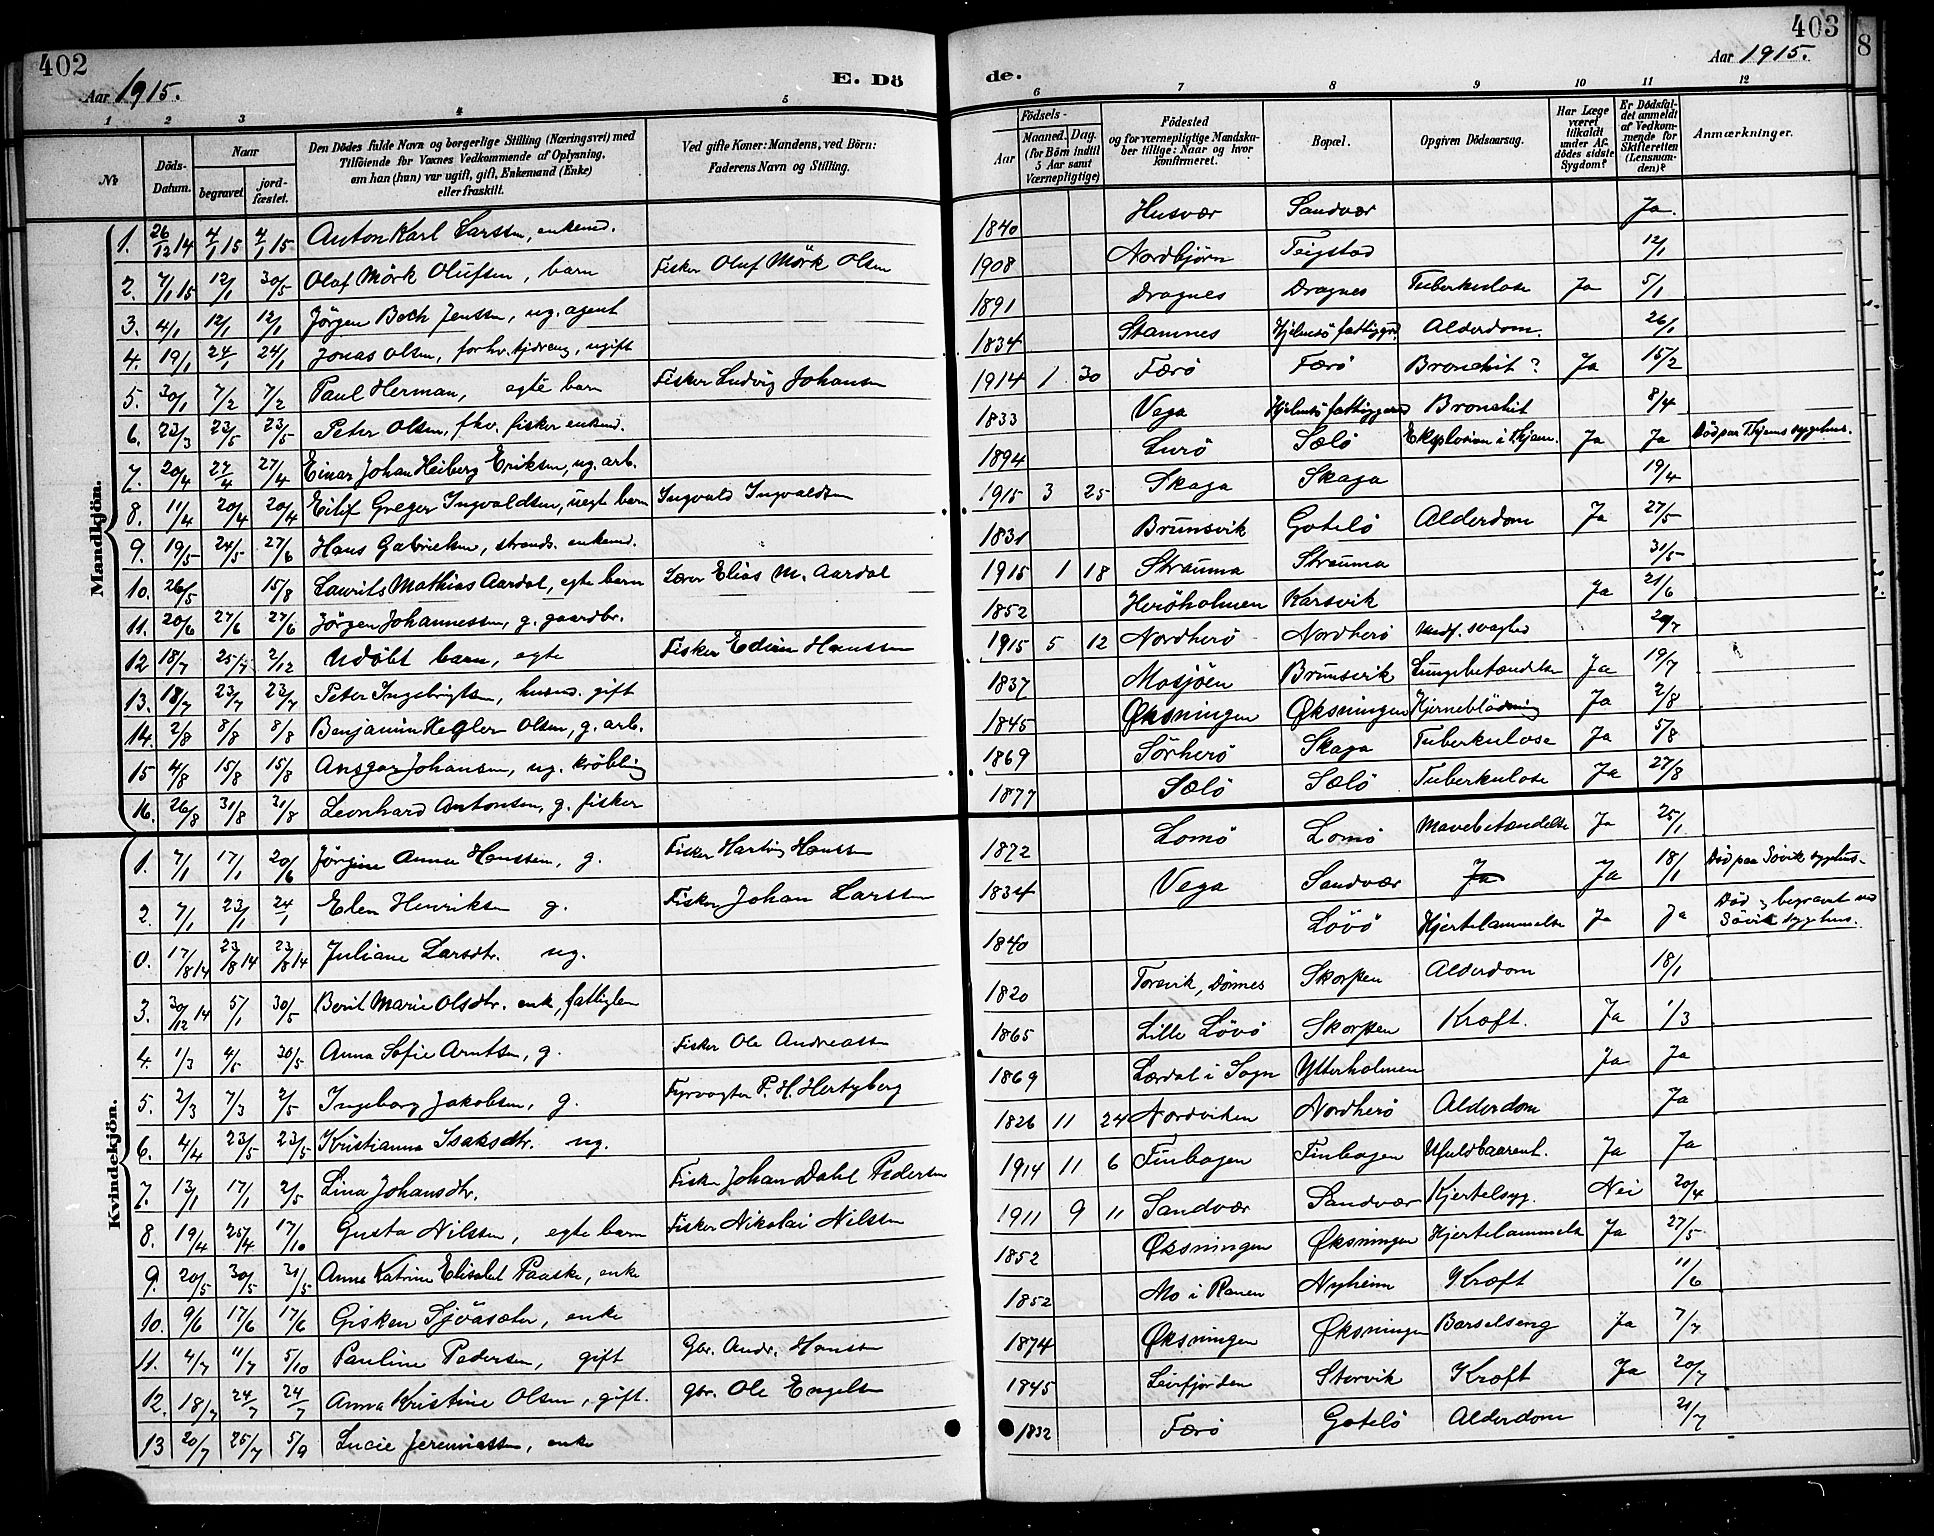 402
Aar 1915.
E. Dö
1 2 3 4 5
№
Döds-Datum.
Naar
begravet
jordfæstet.
Den Dödes fulde Navn og borgerlige Stilling (Næringsvei) med Tilföiende for Voxnes Vedkommende af Oplysning, om han (hun) var ugift, gift, Enkemand (Enke) eller fraskilt.
Ved gifte Koner: Mandens, ved Börn: Faderens Navn og Stilling.
Mandkjön.
1. 26/12 14 4/1 15 4/1 15 Anton Karl Larssen, enkemd.
2. 7/1 15 12/1 30/5 Olaf Mörk Olufsen, barn Fisker Oluf Mörk Olsen
3. 4/1 12/1 12/1 Jörgen Boch Jenssen, ug. agent
4. 19/1 24/1 24/1 Jonas Olsen, forhv. tjdreng, ugift
5. 30/1 7/2 7/2 Paul Herman, egte barn Fisker Ludvig Johansen
6. 23/3 23/5 23/5 Peter Olsen, fhv. fisker enkemd.
7. 20/4 27/4 27/4 Einar Johan Heiberg Eriksen, ug. arb.
8. 11/4 20/4 20/4 Eilif Greger Ingvaldsen, uegt barn Ingvald Ingvaldsen
9. 19/5 24/5 27/6 Hans Gabrielsen, strands. enkemd.
10. 26/5 15/8 Laurits Mathias Aardal, egte barn Lærer Elias M. Aardal
11. 20/6 27/6 27/6 Jörgen Johannessen, g. gaardbr.
12 18/7 25/7 2/12 Udöbt barn, egte Fisker Edvin Hanssen
13. 18/7 23/7 23/7 Peter Ingebrigtsen, husmd. gift
14. 2/8 8/8 8/8 Benjamin Kegler Olsen, g. arb.
15 4/8 15/8 15/8 Ansgar Johansen, ug. kröbling
16. 26/8 31/8 31/8 Leonhard Antonsen, g. fisker
Kvindekjön.
1. 7/1 17/1 20/6 Jörgine Anna Hanssen, g. Fisker Hartvig Hanssen
2. 7/1 23/1 24/1 Elen Henriksen g. Fisker Johan Larssen
0. 17/8 14 23/8 14 23/8 14 Juliane Larsdtr. ug.
3. 30/12 14 5/1 30/5 Berit Marie Olsdtr. enke, fattiglem
4. 1/3 4/5 30/5 Anna Sofie Arntsen, g. Fisker Ole Andreassen
5. 2/3 7/3 2/5 Ingeborg Jakobsen, g. Fyrvogter P. H. Hertzberg
6. 4/4 23/5 23/5 Kristianna Isaksdtr. ug.
7. 13/1 17/1 2/5 Lina Johansdtr. Fisker Johan Dahl Pedersen
8. 19/4 25/4 17/10 Gusta Nilssen, egte barn Fisker Nikolai Nilssen
9. 20/5 30/5 31/5 Anna Katrine Elisabet Paaske, enke
10. 9/6 17/6 17/6 Gisken Sjöasæter, enke
11. 4/7 11/7 5/10 Pauline Pedersen, gift Gbr. Andr. Hanssen
12. 18/7 24/7 24/7 Anna Kristine Olsen, gift. gbr. Ole Engelsen
13 20/7 25/7 5/9 Lucie Jeremiassen, enke
403
8
Aar 1915.
de.
6 7 8 9 10 11 12
Födsels-
Aar
Maaned. Dag.
(for Börn indtil 5 Aar samt Værnepligtige)
Födested og for værnepligtige Mandskaber tillige: Naar og hvor konfirmeret.
Bopæl.
Opgiven Dödsaarsag.
Har Læge været tilkaldt under Afdödes sidste Sygdom?
Er Dödsfaldet anmeldt af Vedkommende for Skifteretten (Lensmanden)?
Anmærkninger.
1840 Husvær Sandvær Ja.
1908 Nordbjörn Teigstad 12/1
1891 Dragnes Dragnes Tuberkulose Ja 5/1
1834 Stamnes Hjelmsö fattiggrd. Alderdom. 26/1
1914 1 30 Færö Færö Bronchit? Ja 15/2
1833 Vega Hjelmsö fattiggaard Bronchit 8/4
1894 Lurö Sælö Eksplosion i Thjem. Ja Ja Död paa Thjems sygehus.
1915 3 25 Skaga Skaga 19/4
1831 Brunsvik Gotelö Alderdom Ja 27/5
1915 1 18 Strauma Strauma 31/5
1852 Heröholmen Karsvik Ja 21/6
1915 5 12 Nordherö Nordherö Medf. svaghed 20/7
1837 Mosjöen Brunsvik Lungebetændelse Ja 19/7
1845 Øksningen Øksningen Hjerneblödning Ja 2/8
1869 Sörherö Skaga Tuberkulose Ja 5/8
1877 Sælö Sælö Tuberkulose Ja 27/8
1872 Lomö Lomö Mavebetændelse Ja 25/1
1834 Vega Sandvær Ja Ja 18/1 Död paa Sövik sygehus.
1840 Lövö Hjertelammelse Ja Ja Död og begravet ved Sövik sygehus.
1820 Torvik, Dönnes Skorpen Alderdom 18/1
1865 Lille Lövö Skorpen Kræft. Ja 1/3
1869 Lærdal i Sogn Ytterholmen Ja Ja
1826 11 24 Nordviken Nordherö Alderdom Ja
1914 11 6 Finbogen Finbogen Ufuldbaarent. Ja Ja
1911 9 11 Sandvær Sandvær Kjertelsyg. Nei 20/4
1852 Øksningen Øksningen Hjertelammelse Ja 27/5
1852 Mo i Ranen Nyheim Kræft 11/6
1874 Øksningen Øksningen Barselseng Ja 7/7
1845 Leirfjorden Storvik Kræft Ja 20/7
1832 Færö Gotelö Alderdom 21/7